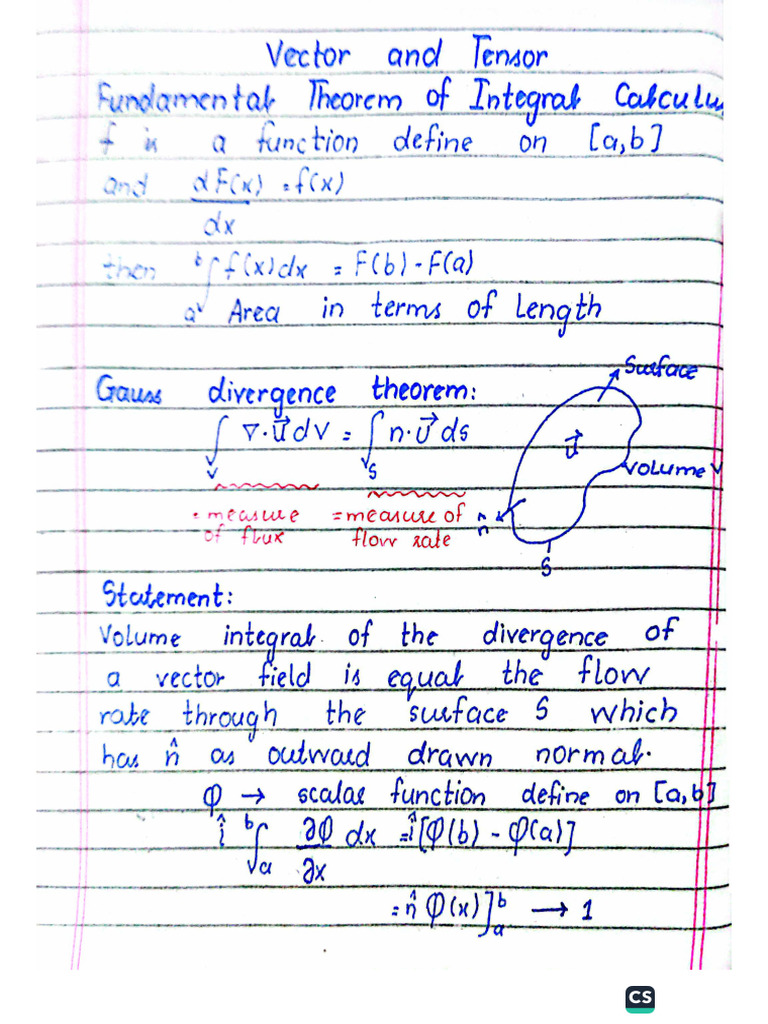 Vector and Tensor
Fundamental Theorem of Integral Calculu
f is a function define on [a,b]
and dF(x)/dx = f(x)
then ᵇ∫ₐ f(x)dx = F(b) - F(a)
Area in terms of Length
Gauss divergence theorem:
∫ᵥ ∇·u⃗ dV = ∫ₛ n·u⃗ ds
= measure of flux
= measure of flow rate
Surface
u⃗
Volume V
n̂
S
Statement:
Volume integral of the divergence of
a vector field is equal the flow
rate through the surface S which
has n̂ as outward drawn normal.
φ → scalar function define on [a,b]
î ᵇ∫ₐ ∂φ/∂x dx = î[φ(b) - φ(a)]
= n̂ φ(x)]ₐᵇ → 1
CS